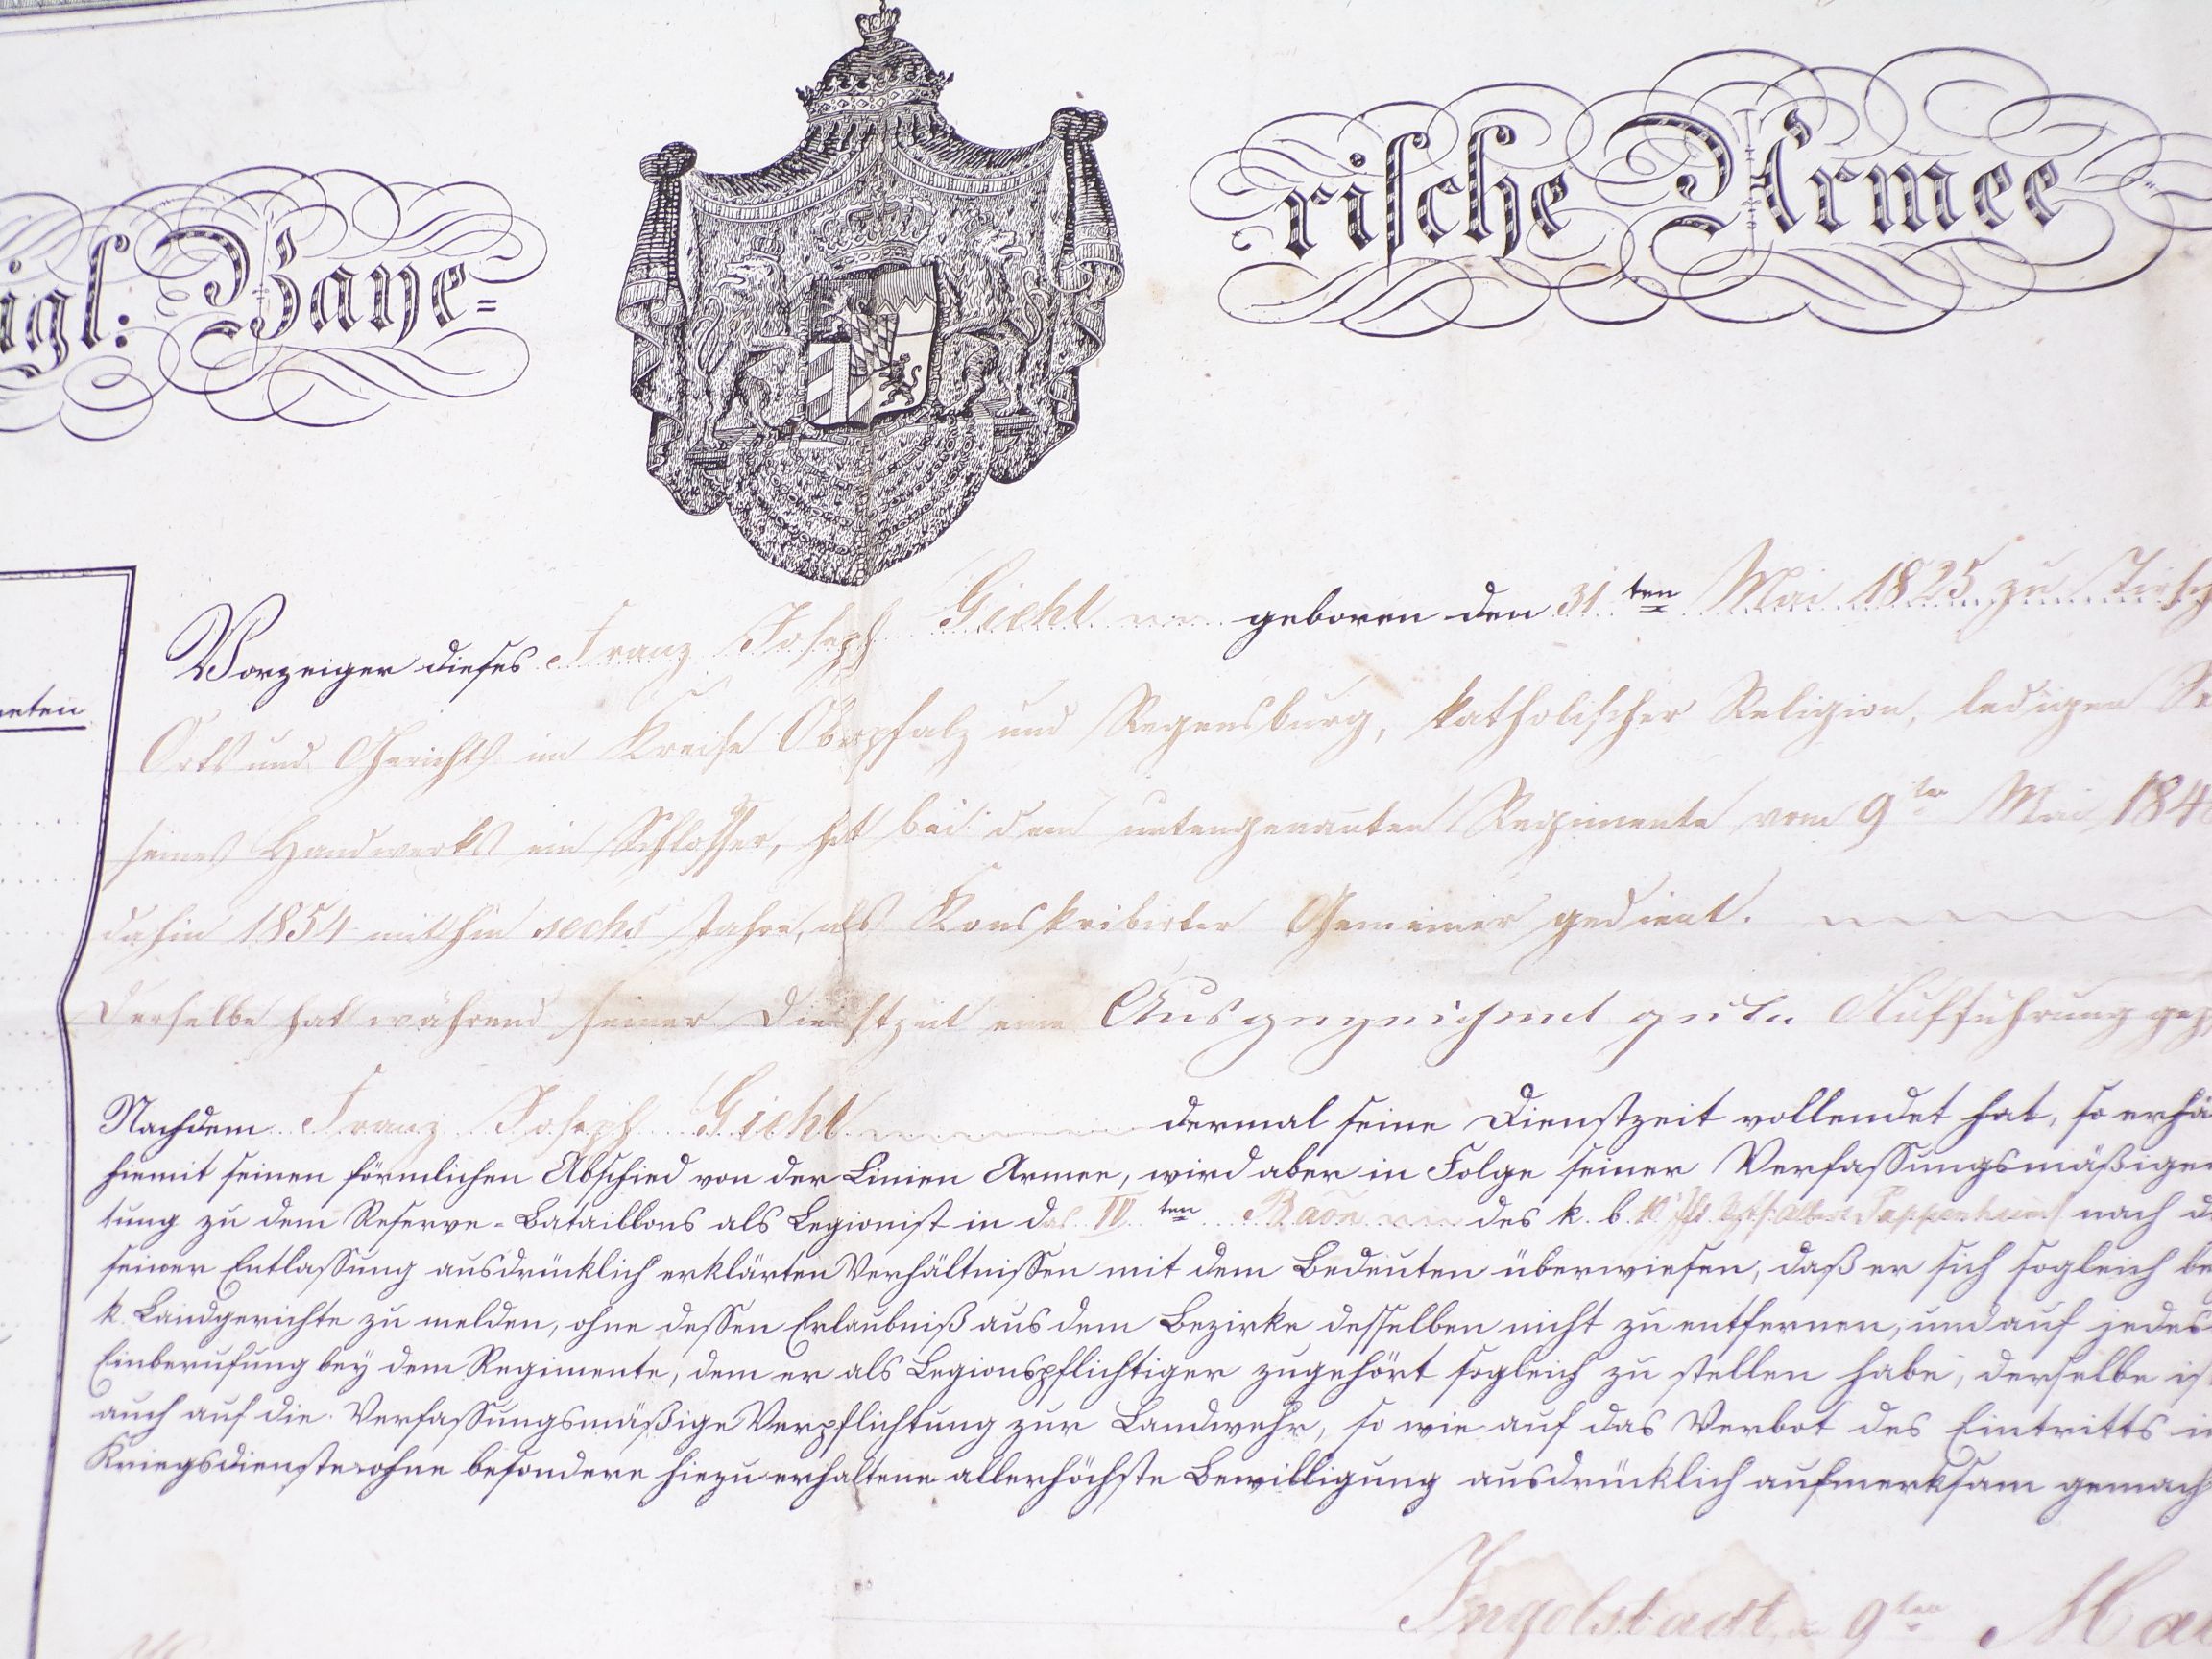 igl: Baye=
rische Armee
Vorzeiger dieses Franz Joseph Gicht geboren den 31 ten Mai 1825 zu Tirsch
neten
Orts und Gerichts im Kreise Oberpfalz und Regensburg, katholischer Religion, ledigen
seines Handwerks ein Schlosser, hat bei dem untengenannten Regimente vom 9 ten Mai 184
dahin 1854 mithin sechs Jahre, als Konskribirter Gemeiner gedient.
Derselbe hat während seiner Dienstzeit eine Ausgezeichnet gute Aufführung
Nachdem Franz Joseph Gicht dermal seine Dienstzeit vollendet hat, so erhä
hiemit seinen förmlichen Abschied von der Linien Armee, wird aber in Folge seiner Verfassungsmäßigen
tung zu dem Reserve-Bataillons als Legionist in das IV ten Baon des k. b. Pappenheim nach d
seiner Entlassung ausdrücklich erklärten Verhältnissen mit dem Bedeuten überwiesen, daß er sich sogleich be
k. Landgerichte zu melden, ohne dessen Erlaubniß aus dem Bezirke desselben nicht zu entfernen, und auf jedes
Einberufung bey dem Regimente, dem er als Legionspflichtiger zugehört sogleich zu stellen habe, derselbe is
auch auf die Verfassungsmäßige Verpflichtung zur Landwehr, so wie auf das Verbot des Eintritts in
Kriegsdienste ohne besondere hiezu erhaltene allerhöchste Bewilligung ausdrücklich aufmerksam gemach
Ingolstadt 9 ten Mai